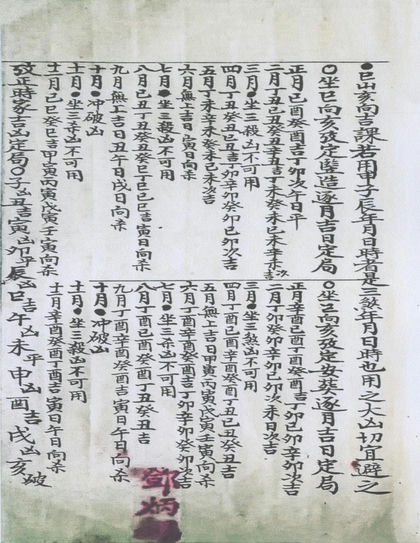 ●巳山亥向吉課若用申子辰年月日時者是三煞年月日時也用之大凶切宜避之
○坐巳向亥及定豎造逐月吉日定局
正月乙酉癸酉吉丁卯次午日平
三月●坐三殺凶不可用
四月丁丑癸丑己丑吉丁卯辛卯癸卯己卯次吉
五月丁未辛未癸未己未次吉
六月無上吉日寅日向杀
七月●坐三殺凶不可用
八月己丑丁丑癸丑癸巳丁巳己巳吉寅日向杀
九月無上吉日丑午日戌日向杀
十月●冲破凶
十一月●坐三杀凶不可用
十二月己巳癸巳吉甲寅丙寅戊寅壬寅向杀
○坐巳向亥及定安葬逐月吉日定局
正月辛酉己酉丁酉癸酉吉丁卯己卯辛卯次吉
二月丁卯癸卯辛卯己卯次未日次吉
三月●坐三煞凶不可用
四月丁酉己酉辛酉癸酉丁丑己丑癸丑吉
五月無上吉日甲寅丙寅戊寅壬寅向杀
六月丁酉辛酉癸酉吉丁卯辛卯癸卯次吉
七月●坐三杀凶不可用
八月丁酉己酉癸酉丁丑癸丑吉
九月丁酉辛酉癸酉吉寅日午日向杀
十月●冲破凶
十一月●坐三殺凶不可用
十二月辛酉癸酉丁酉吉寅日午日向杀
時家吉凶定局○子丑吉寅凶卯平辰巳吉午凶未平申凶酉吉戌凶亥破
鄧炳